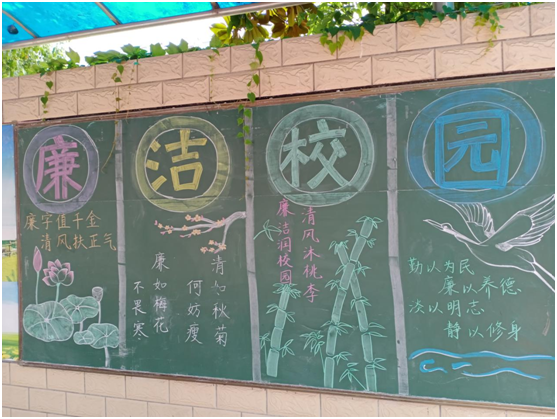 廉
洁
校
园
廉字值千金
清风扶正气
清如秋菊
何妨瘦
廉如梅花
不畏寒
清风沐桃李
廉洁润校园
勤以为民
廉以养德
淡以明志
静以修身